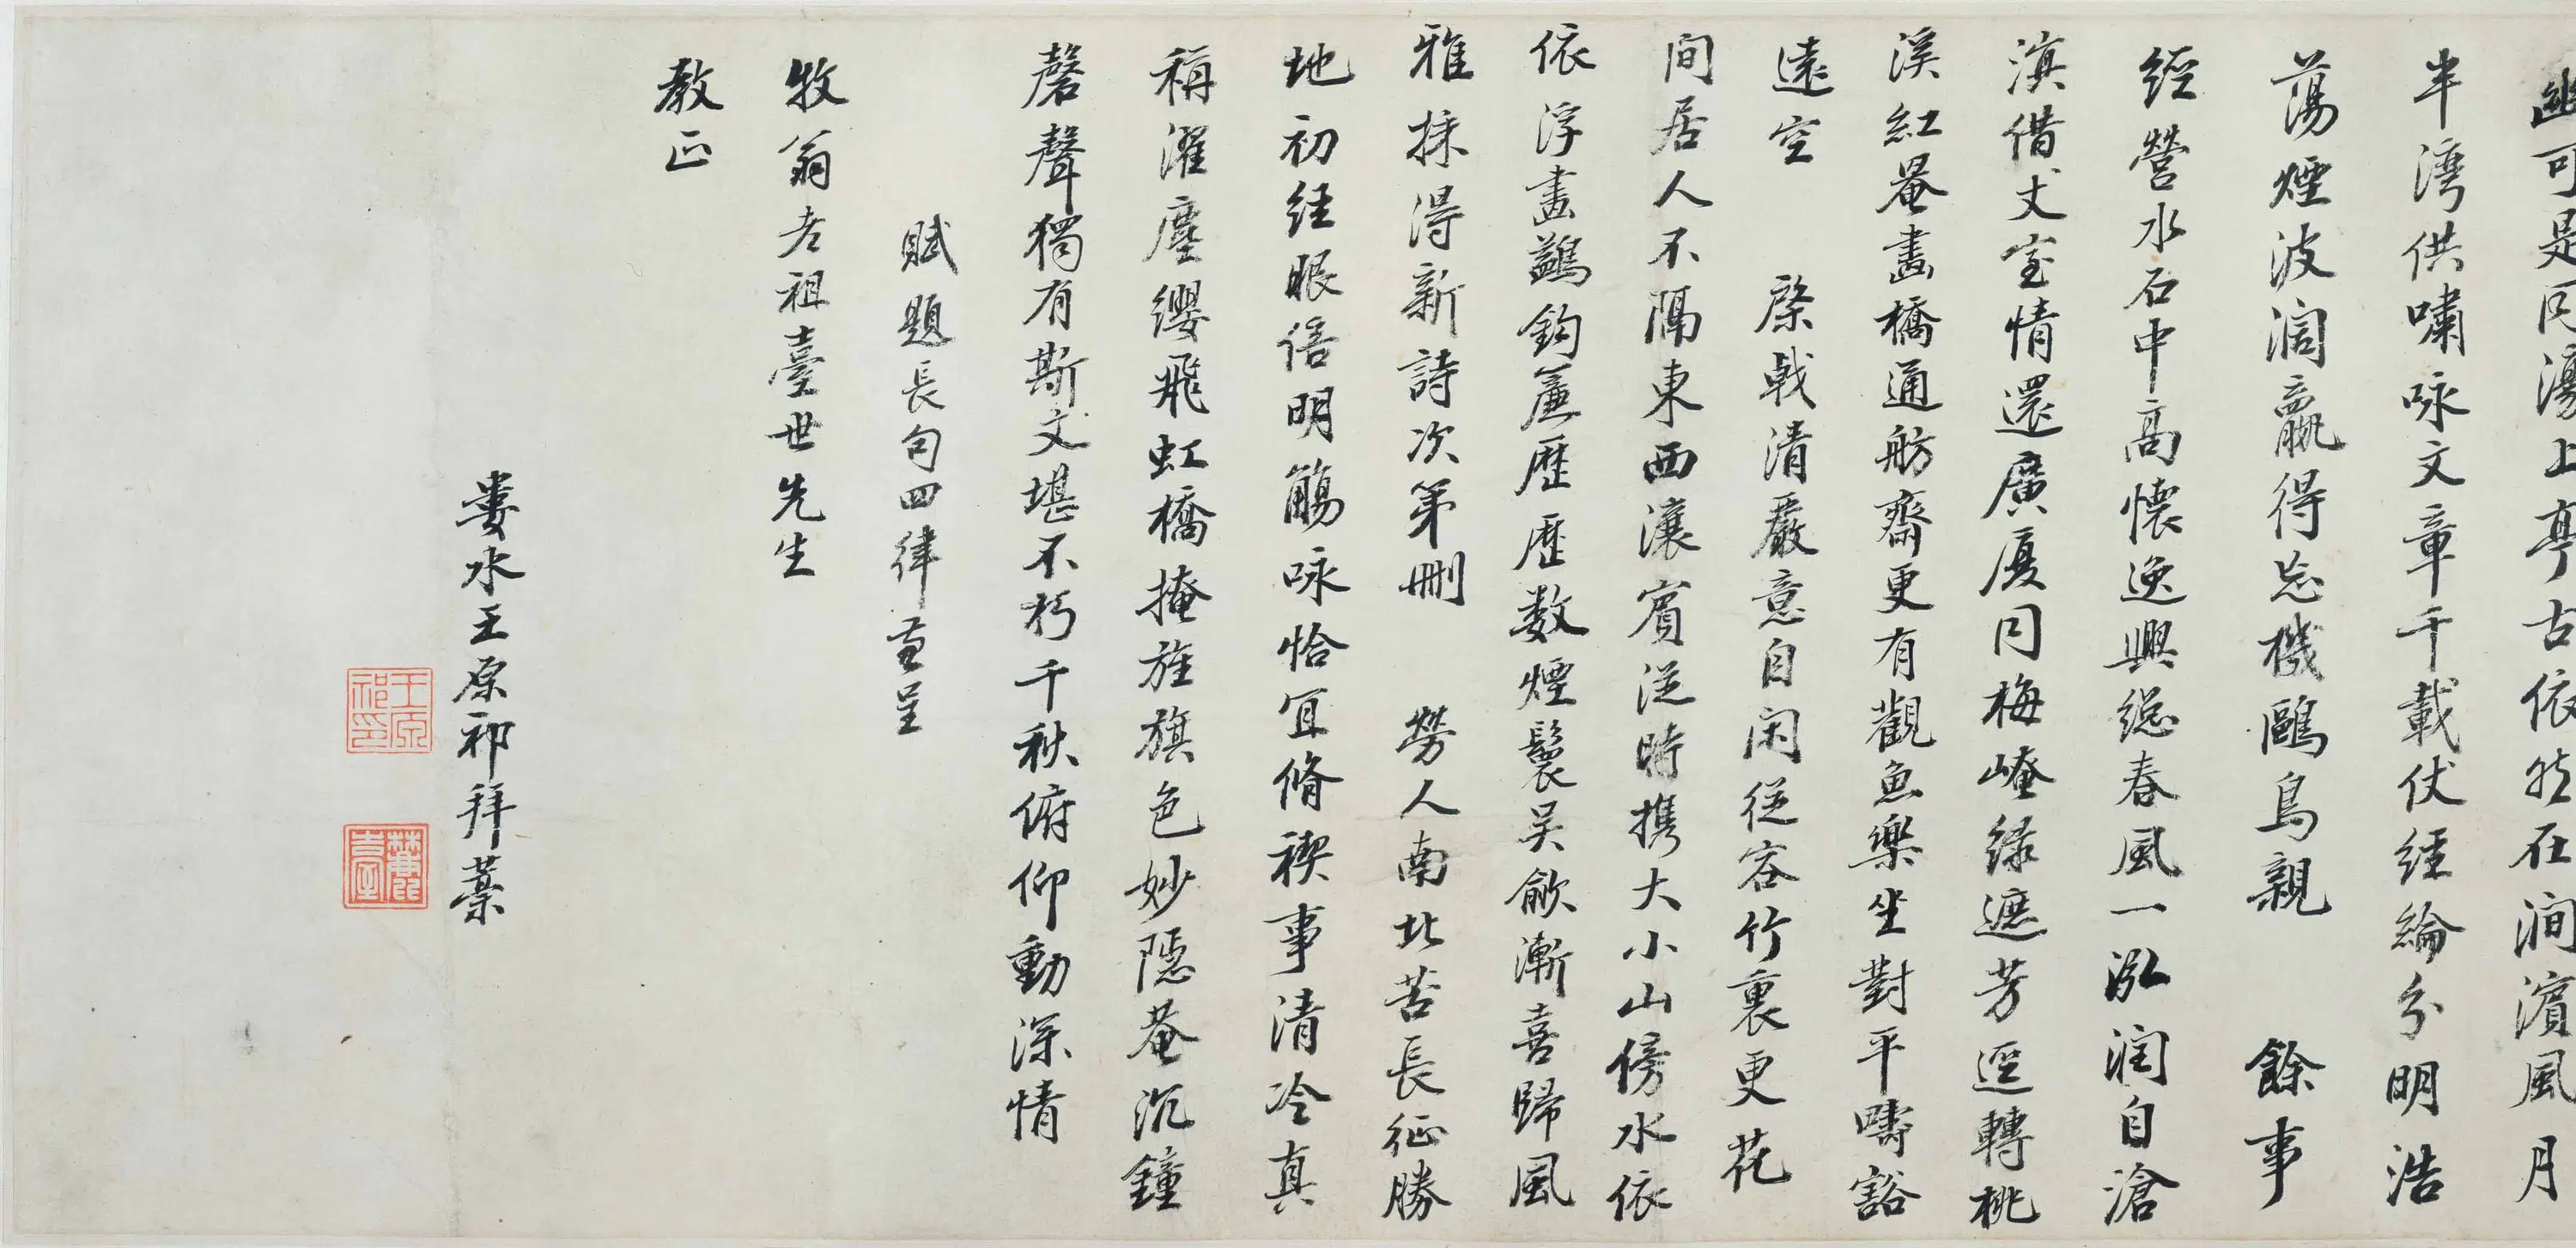 幽可是同濠上亭古依然在澗濱風月
半灣供嘯咏文章千載伏經綸分明浩
蕩煙波濶贏得忘機鷗鳥親　餘事
經營水石中高懷逸興總春風一泓潤自滄
滇借丈室情還廣廈同梅崦綠遮芳逕轉桃
溪紅晷畫橋通舫齋更有觀魚樂坐對平疇豁
遠空　棨戟清嚴意自閑從容竹裏更花
間居人不隔東西瀼賓從時携大小山傍水依
依浮畫鷁鈎簾歷歷數煙鬟吴歈漸喜歸風
雅採得新詩次第刪　勞人南北苦長征勝
地初經眼倍明觴咏恰宜脩禊事清冷真
稱濯塵纓飛虹橋掩旌旗色妙隱菴沉鐘
磬聲獨有斯文堪不朽千秋俯仰動深情
賦題長句四律畣呈
牧翁老祖臺世先生
教正
婁水王原祁拜藁
王原祁印
麓臺